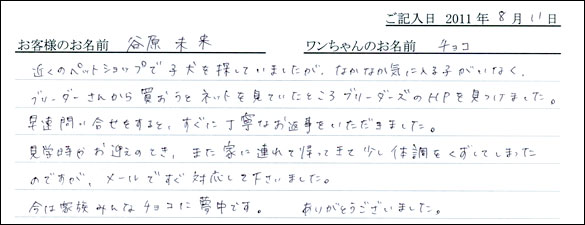 ご記入日 2011年 8月 11日
お客様のお名前 谷原 未来 ワンちゃんのお名前 チョコ
近くのペットショップで子犬を探していましたが、なかなか気に入る子がいなく、
ブリーダーさんから買おうとネットを見ていたところブリーダーズのHPを見つけました。
早速問い合せをすると、すぐに丁寧なお返事をいただきました。
見学時やお迎えのとき、また家に連れて帰ってきて少し体調をくずしてしまった
のですが、メールですぐ対応して下さいました。
今は家族みんなチョコに夢中です。 ありがとうございました。